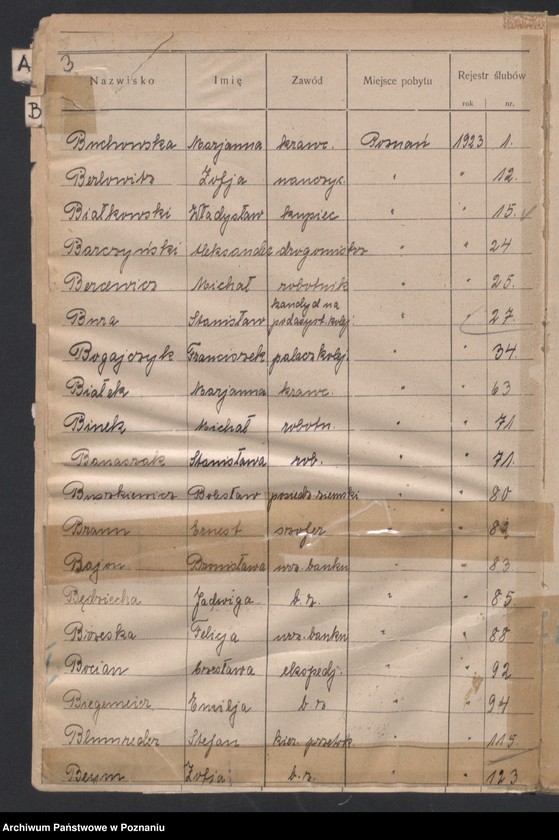 A
B
3
Nazwisko Imię Zawód Miejsce pobytu Rejestr ślubów
rok nr.
Buchowska Marjanna krawc. Poznań 1923 1.
Berlowitz Zofja nauczyc. " " 12.
Białkowski Władysław kupiec " " 15.
Barczyński Aleksander drogomistrz " " 24
Bercewicz Michał robotnik " " 25.
Buza Stanisław kandyd na " " 27.
podasyst. kolej.
Bogajczyk Franciszek palacz kolej. " " 34
Białek Marjanna krawc. " " 63
Binek Michał robotn. " " 71
Banaszak Stanisława rob. " " 71.
Buszkiewicz Bolesław posiedz. ziemski " " 80
Braun Ernest szofer " "
Bajon Bronisława urz. banku " " 83
Będziecha Jadwiga b. z. " " 85
Felicja urz. banku " " 88
Bocian Czesława ekspedj. " " 92
Bregemeier Emilja b. z " " 94
Blumreder Stefan kier. " " 115
Beym Zofja b. z. " " 123
Archiwum Państwowe w Poznaniu